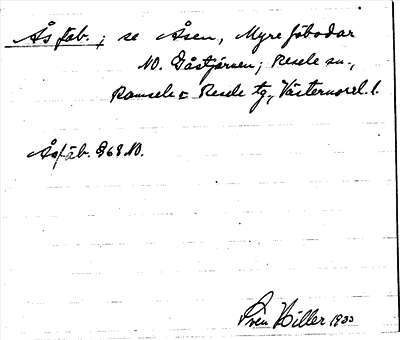 Ås fäb.; se Åsen, Myre fäbodar
NO. Gåstjärnen; Resele sn.,
Ramsele & Resele tg., Västernorrl. l.
Åsfäb. G68 NO.
Sven Hiller 1933